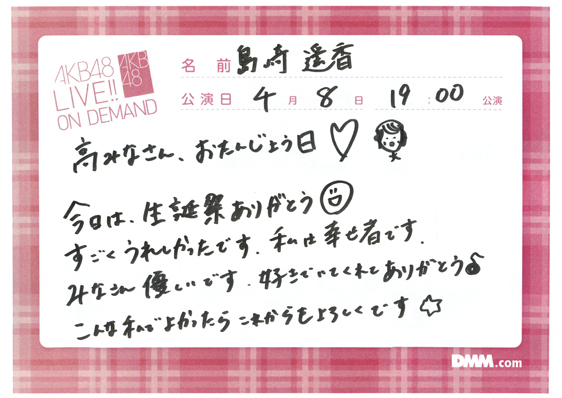 AKB48
LIVE!!
ON DEMAND
AKB
48
名 前 島崎 遥香
公演日 4 月 8 日 19 : 00 公演
高みなさん、おたんじょう日♡
今日は、生誕祭ありがとう
すごくうれしかったです。私は幸せ者です。
みなさん優しいです。好きでいてくれてありがとう♪
こんな私でよかったらこれからもよろしくです☆
DMM.com